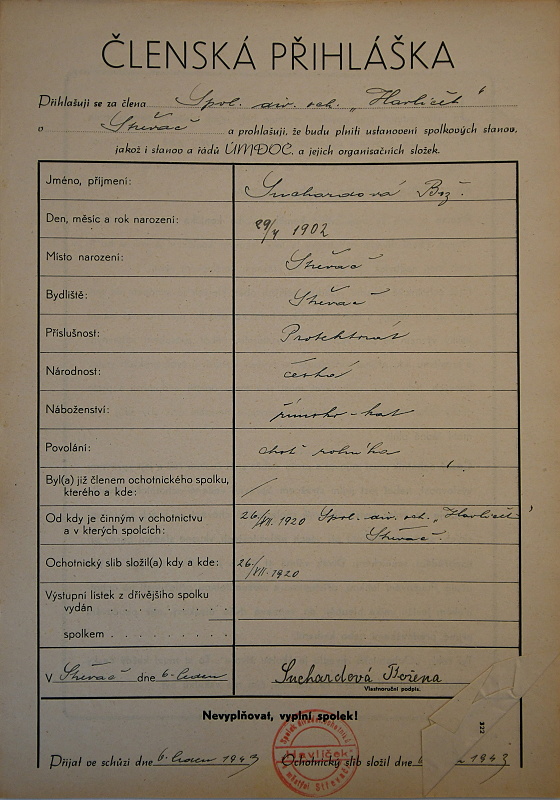 ČLENSKÁ PŘIHLÁŠKA
Přihlašuji se za člena Spol. div. och. „Havlíček"
v Střevač a prohlašuji, že budu plniti ustanovení spolkových stanov,
jakož i stanov a řádů ÚMDOČ. a jejich organisačních složek.
Jméno, příjmení: Suchardová Bož.
Den, měsíc a rok narození: 29/V 1902
Místo narození: Střevač
Bydliště: Střevač
Příslušnost: Protektorát
Národnost: česká
Náboženství: římsko-kat
Povolání: choť rolníka
Byl(a) již členem ochotnického spolku,
kterého a kde: /
Od kdy je činným v ochotnictvu 26/VII. 1920 Spol. div. och. „Havlíček"
a v kterých spolcích: Střevač.
Ochotnický slib složil(a) kdy a kde: 26/VII. 1920
Výstupní lístek z dřívějšího spolku
vydán . . . . . . . . . .
spolkem . . . . . . . . .
V Střevač dne 6. leden Suchardová Božena
Vlastnoruční podpis.
Nevyplňovat, vyplní spolek!
322
Havlíček
Přijat ve schůzi dne 6. leden 1943 Ochotnický slib složil dne 1943